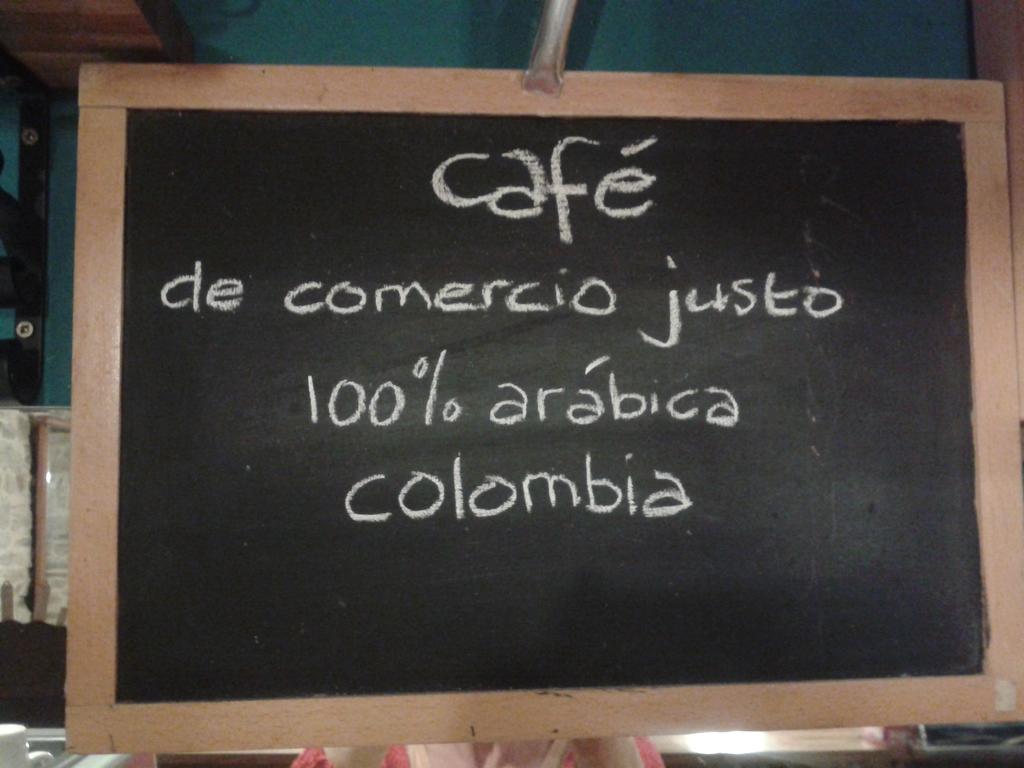 café
de comercio justo
100% arábica
colombia